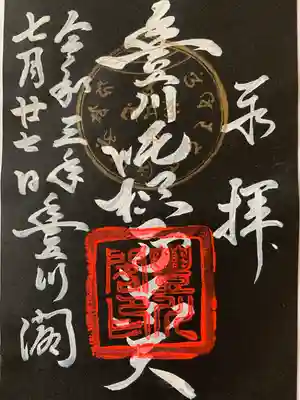 奉拝
豊川吒枳尼真天
令和三年
七月廿七日
豊川閣